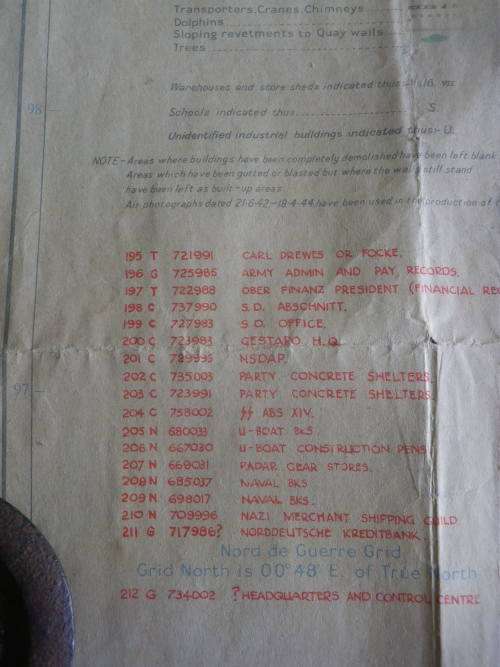 Transporters, Cranes, Chimneys
Dolphins
Sloping revetments to Quay walls
Trees
98
Warehouses and store sheds indicated thus:-
Schools indicated thus S
Unidentified industrial buildings indicated thus:- U.
NOTE - Areas where buildings have been completely demolished have been left blank
Areas which have been gutted or blasted but where the walls still stand
have been left as built-up areas
Air photographs dated 21-6-42-18-4-44 have been used in the production of
195 T 721991 CARL DREWES OR FOCKE.
196 G 725985 ARMY ADMIN AND PAY RECORDS.
197 T 722988 OBER FINANZ PRESIDENT (FINANCIAL REC
198 C 737990 S.D. ABSCHNITT.
199 C 727983 S.D. OFFICE.
200 C 723983 GESTAPO H.Q.
201 C 789995 NSDAP.
97
202 C 735003 PARTY CONCRETE SHELTERS
203 C 723991 PARTY CONCRETE SHELTERS
204 C 758002 SS ABS XIV.
205 N 680033 U-BOAT BKS.
206 N 667030 U-BOAT CONSTRUCTION PENS
207 N 669031 RADAR GEAR STORES.
208 N 685037 NAVAL BKS
209 N 698017 NAVAL BKS.
210 N 709996 NAZI MERCHANT SHIPPING GUILD
211 G 717986? NORDDEUTSCHE KREDITBANK
Nord de Guerre Grid
Grid North is 00°48' E. of True North
212 G 734002 ? HEADQUARTERS AND CONTROL CENTRE